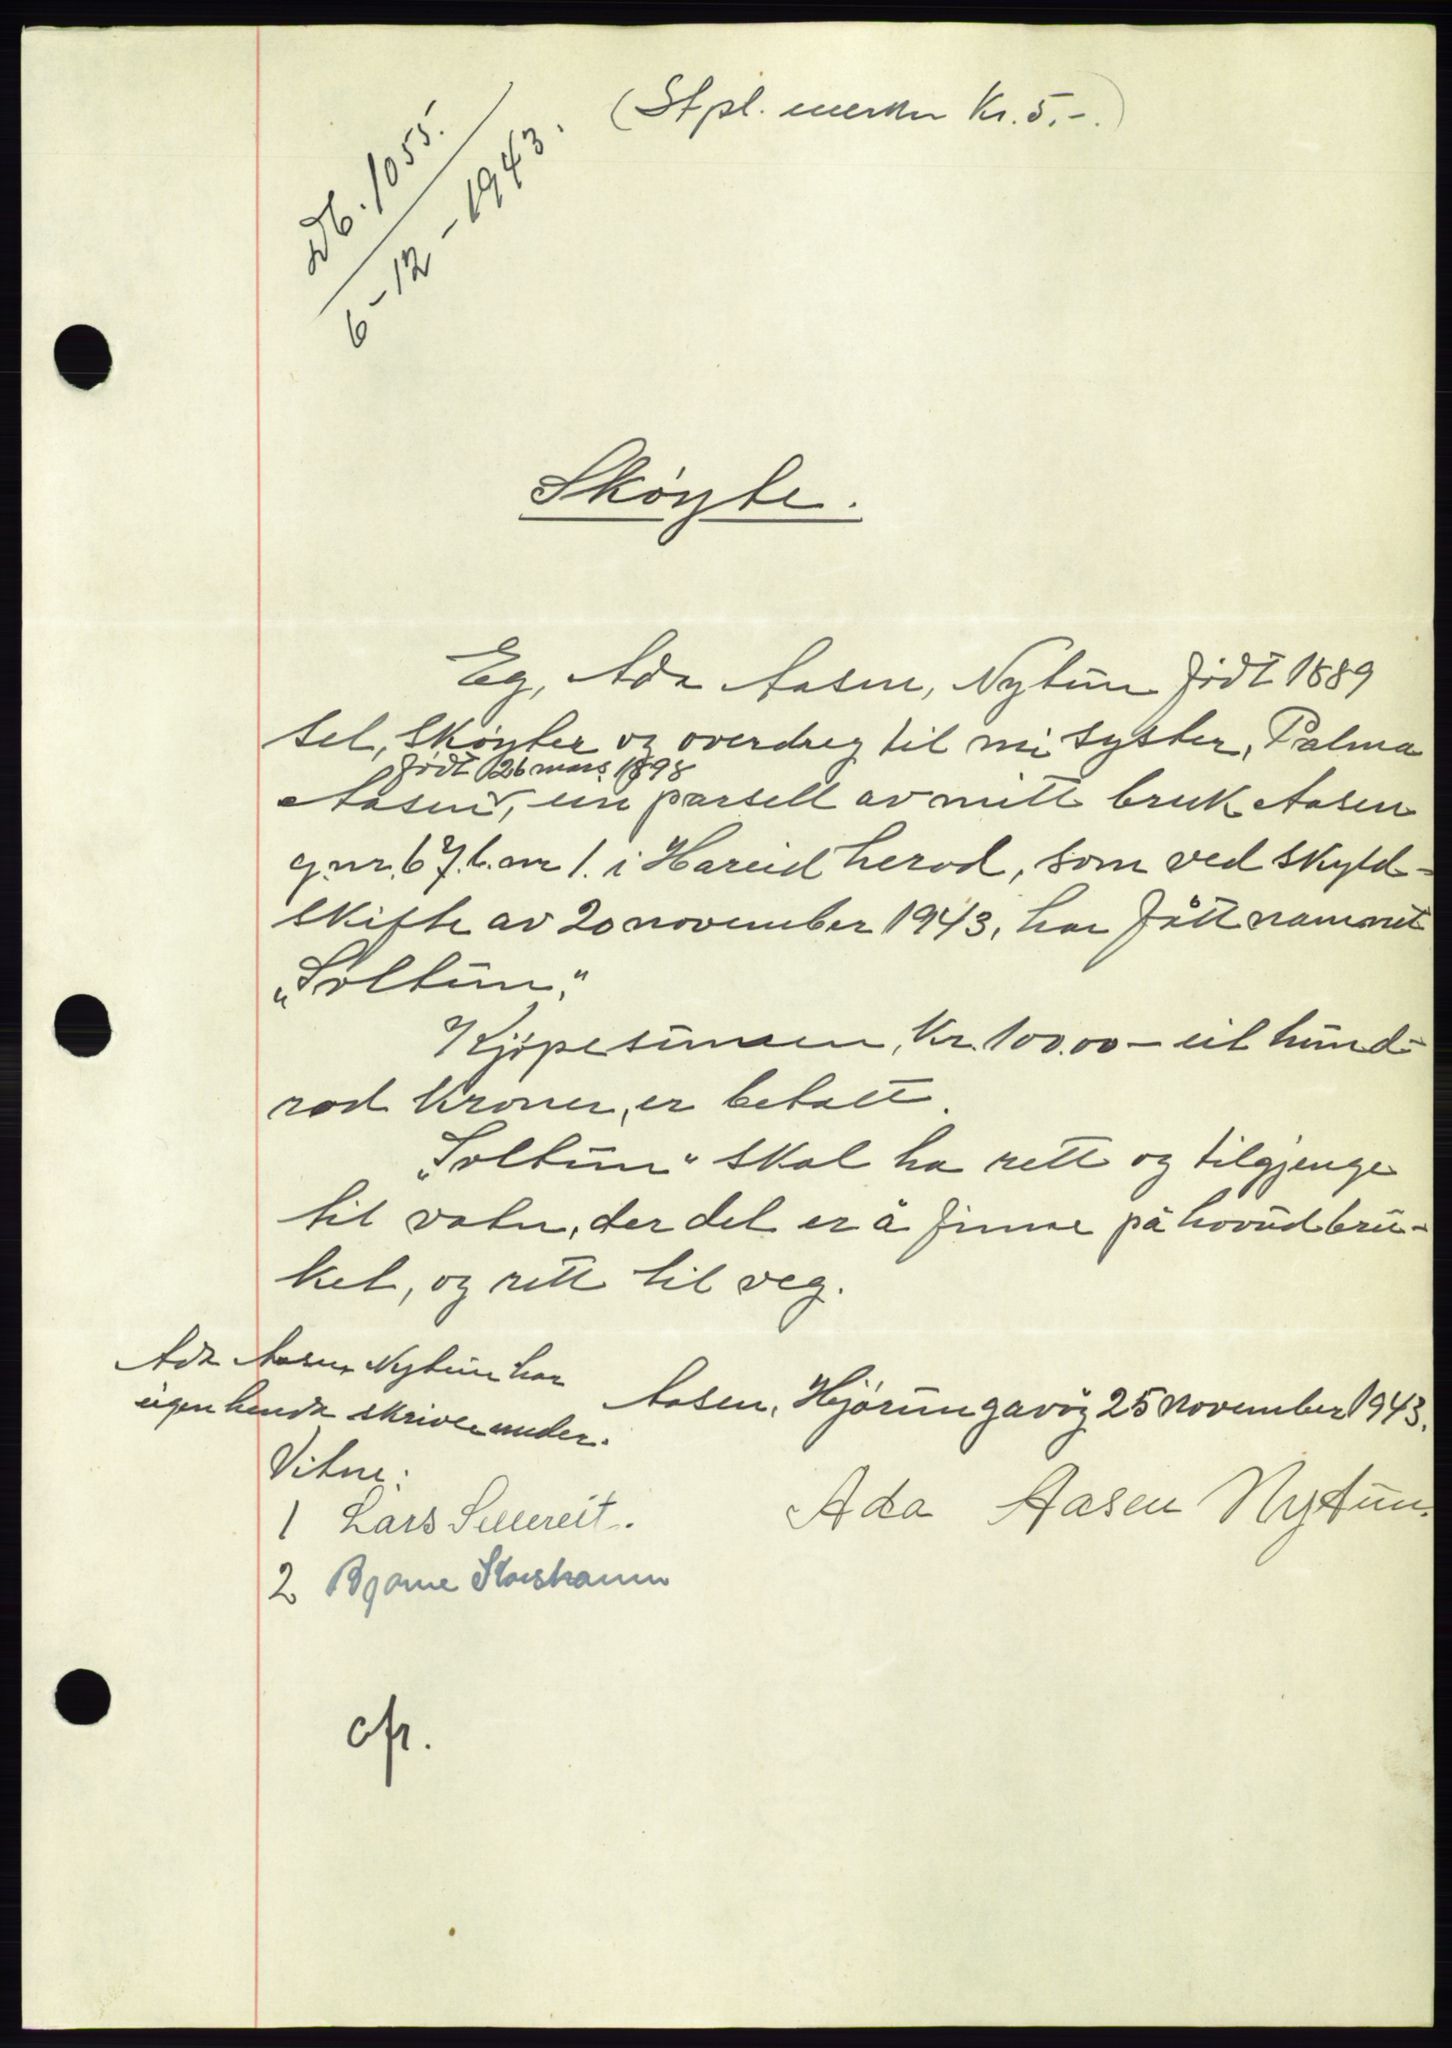 (Stpl. merker Kr. 5,-.)
Db. 1055.
6-12-1943.
Skøyte.
Eg, Ada Aasen, Nytun født 1889
sel, skøyter og overdreg til mi syster, Palma
født 26 mars 1898
Aasen, ein parsell av mitt bruk Aasen
g.nr. 67. b.nr 1. i Hareid herad, som ved skyld-
skifte av 20 november 1943, har fått namnet
„Soltun."
Kjøpesumen, Kr. 100.00 – eit hund-
rad kroner, er betalt.
„Soltun" skal ha rett og tilgjenge
til vatn, der det er å finne på hovudbru-
ket, og rett til veg.
Ada Aasen Nytun har
eigenhendk skrive under.
Aasen, Hjørungavåg 25 november 1943.
Vitne:
1 Lars
2 Bjarne
Ada Aasen Nytun.
cfr.